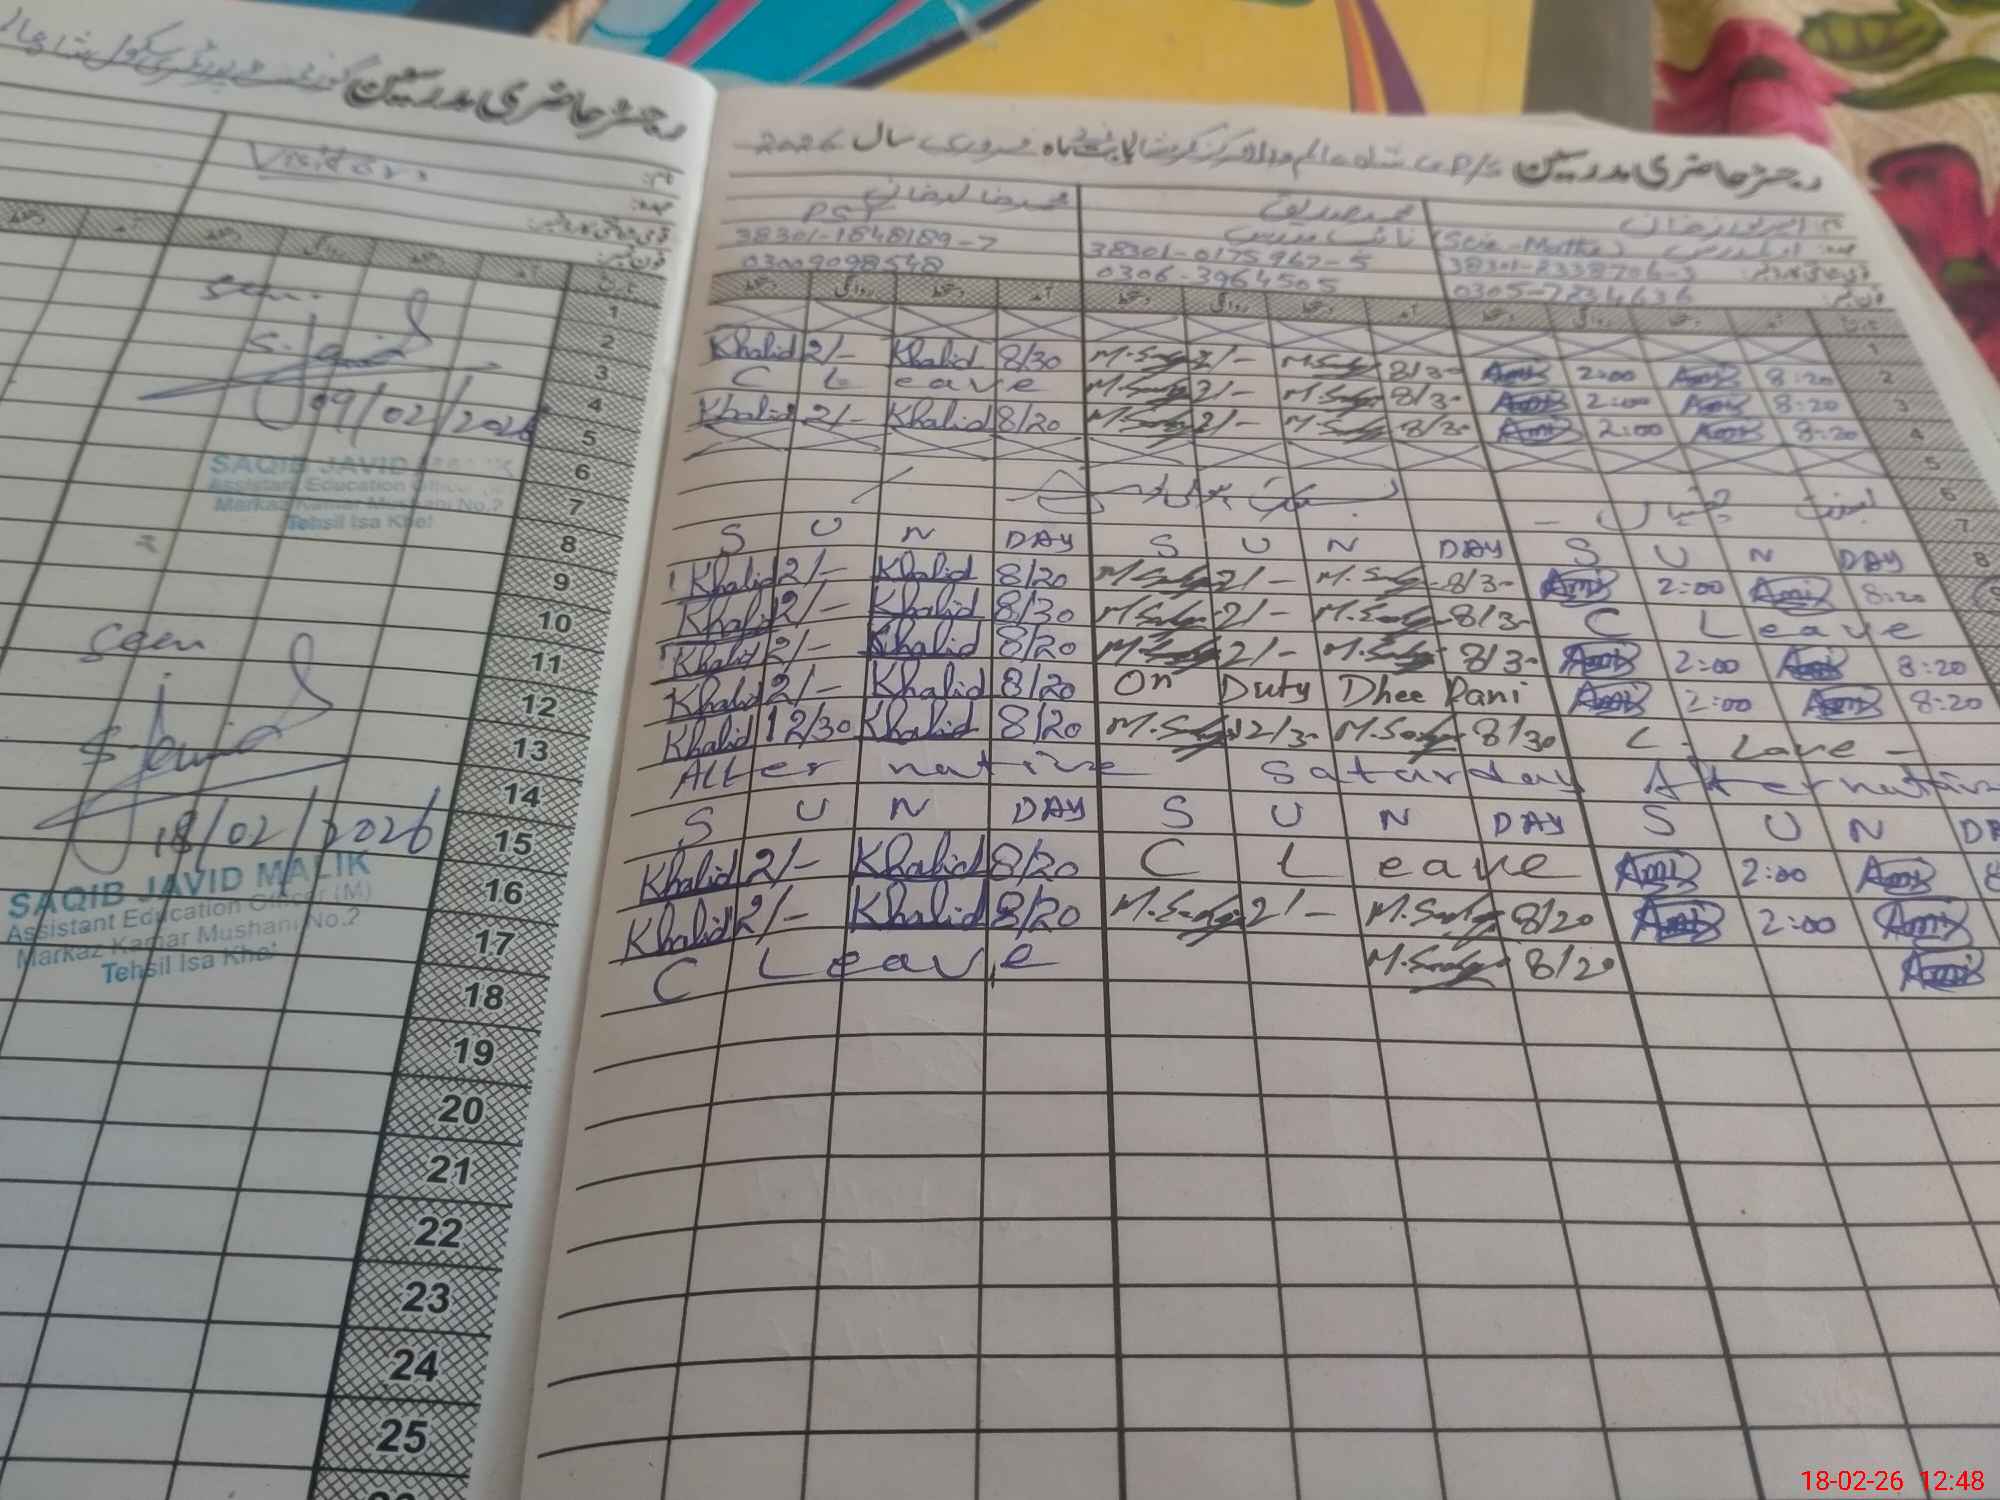 رجسٹر حاضری مدرسین
Visitors
نام:
عہدہ:
قومی شناختی کارڈ نمبر:
فون نمبر:
تاریخ
Seen
09/02/2026
SAQIB JAVID MALIK
Assistant Education Officer (M)
Markaz Kamar Mushani No.2
Tehsil Isa Khel
Seen
18/02/2026
SAQIB JAVID MALIK
Assistant Education Officer (M)
Markaz Kamar Mushani No.2
Tehsil Isa Khel
1
2
3
4
5
6
7
8
9
10
11
12
13
14
15
16
17
18
19
20
21
22
23
24
25
رجسٹر حاضری مدرسین P/S ماہ فروری سال 2026
PST
38301-1848189-7 38301-0175967-5
03009098548 0306-3964505 0305-7234636
1
Khalid 2/- Khalid 8/30 M.Sadiq 2/- M.Sadiq 8/30 Amir 2:00 Amir 8:20 2
C Leave M.Sadiq 2/- M.Sadiq 8/30 Amir 2:00 Amir 8:20 3
Khalid 2/- Khalid 8/20 M.Sadiq 2/- M.Sadiq 8/30 Amir 2:00 Amir 8:20 4
5
6
7
S U N DAY S U N DAY S U N DAY 8
Khalid 2/- Khalid 8/20 M.Sadiq 2/- M.Sadiq 8/30 Amir 2:00 Amir 8:20 9
Khalid 2/- Khalid 8/30 M.Sadiq 2/- M.Sadiq 8/30 C Leave
Khalid 2/- Khalid 8/20 M.Sadiq 2/- M.Sadiq 8/30 Amir 2:00 Amir 8:20
Khalid 2/- Khalid 8/20 On Duty Dhee Rani Amir 2:00 Amir 8:20
Khalid 12/30 Khalid 8/20 M.Sadiq 12/30 M.Sadiq 8/30 L. Lave -
Alternative Saturday Alternative
S U N DAY S U N DAY S U N DA
Khalid 2/- Khalid 8/20 C Leave Amir 2:00 Amir 8
Khalid 2/- Khalid 8/20 M.Sadiq 2/- M.Sadiq 8/20 Amir 2:00 Amir
C Leave M.Sadiq 8/20 Amir
18-02-26 12:48